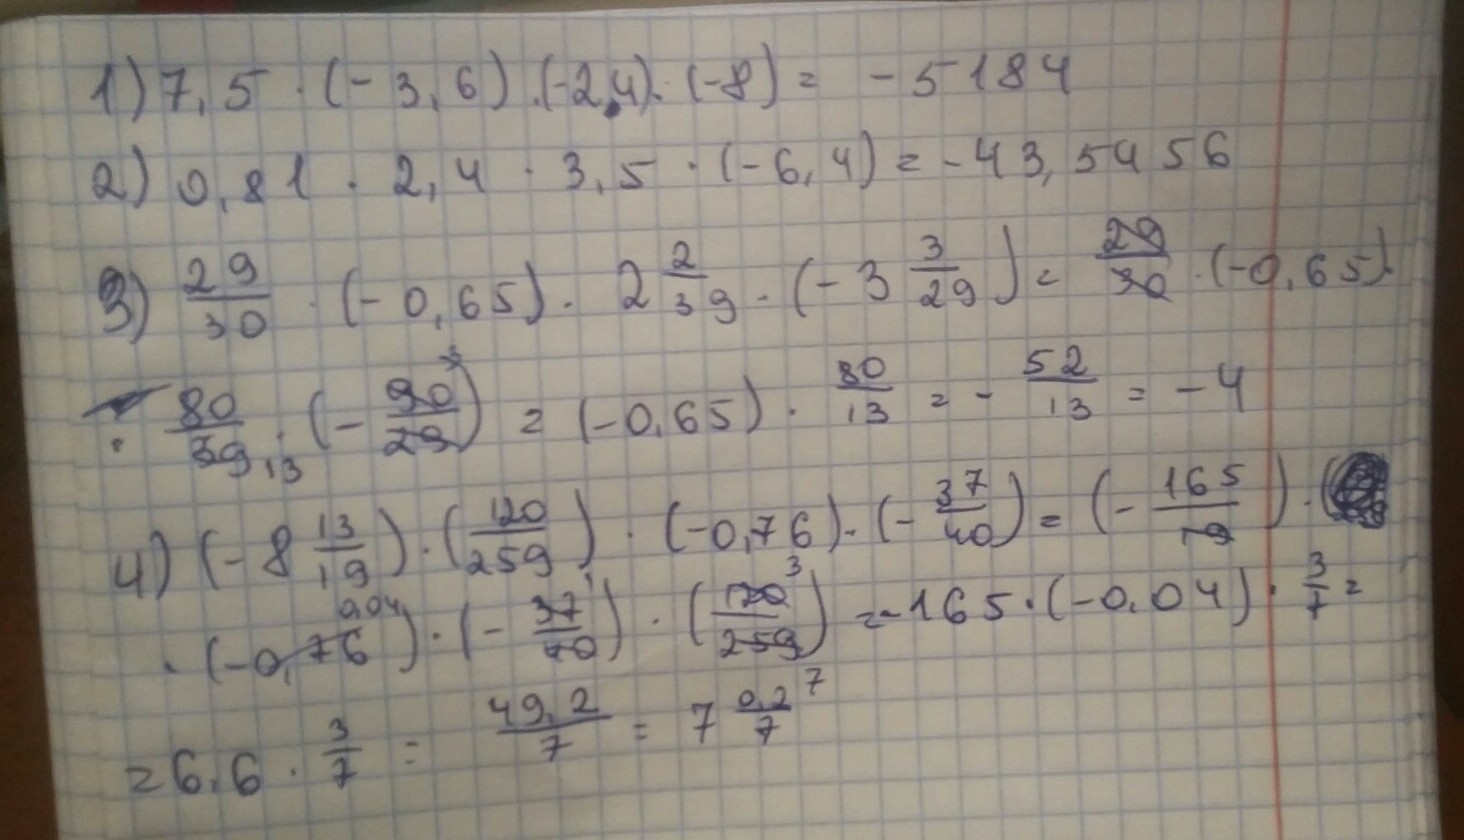 1) 7,5 · (-3,6) · (-2,4) · (-8) = -5184
2) 0,81 · 2,4 · 3,5 · (-6,4) = -43,5456
3) 29/30 · (-0,65) · 2 2/39 · (-3 3/29) = 29/30 · (-0,65) ·
· 80/39 13 · (- 90/29 3) = (-0,65) · 80/13 = - 52/13 = -4
4) (-8 13/19) · (120/259) · (-0,76) · (- 37/40) = (- 165/19) ·
· (-0,76 0,04) · (- 37/40 1) · (120/259 3 7) = -165 · (-0,04) · 3/7 =
= 6,6 · 3/7 = 49,2/7 = 7 0,2/7